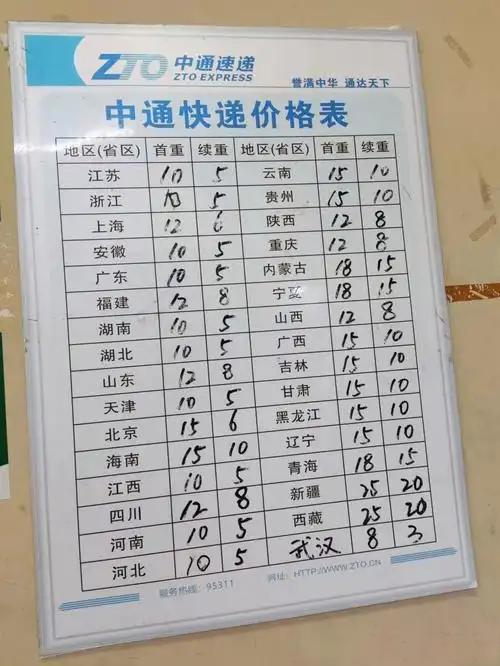 ZTO 中通速递
ZTO EXPRESS
誉满中华 通达天下
中通快递价格表
地区(省区) 首重 续重 地区(省区) 首重 续重
江苏 10 5 云南 15 10
浙江 10 5 贵州 15 10
上海 12 6 陕西 12 8
安徽 10 5 重庆 12 8
广东 10 5 内蒙古 18 15
福建 12 8 宁夏 18 15
湖南 10 5 山西 12 8
湖北 10 5 广西 15 10
山东 12 8 吉林 15 10
天津 10 5 甘肃 15 10
北京 15 6 黑龙江 15 10
海南 15 10 辽宁 15 10
江西 10 5 青海 18 15
四川 12 8 新疆 25 20
河南 10 5 西藏 25 20
河北 10 5 武汉 8 3
服务热线: 95311 网址: HTTP://WWW.ZTO.CN